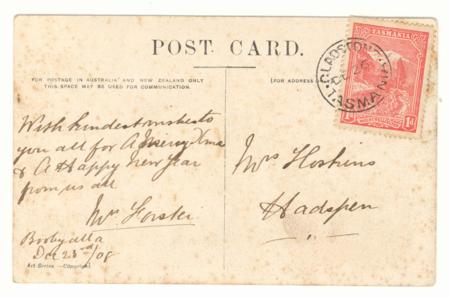 POST CARD.
FOR POSTAGE IN AUSTRALIA AND NEW ZEALAND ONLY
THIS SPACE MAY BE USED FOR COMMUNICATION.
(FOR ADDRESS
TASMANIA
GLADSTONE
TASMANIA
1d 1d
With kindest wishes to
you all for A Merry Xmas
& A Happy New Year
from us all
Mrs
Boobyalla
Dec 23rd/08
Mrs Hoskins
Hadspen
Art Series —Copyright.